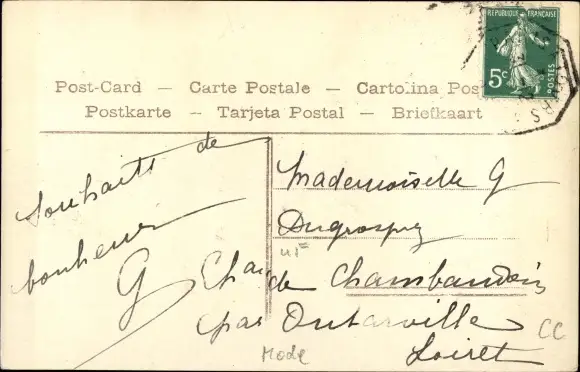 Post-Card — Carte Postale — Cartolina Pos
Postkarte — Tarjeta Postal — Briefkaart
REPUBLIQUE FRANÇAISE
5c
POSTES
Souhaits de
bonheur
G
Mademoiselle G
de Chambaudoin
par Outarville
Loiret
Mode
CC